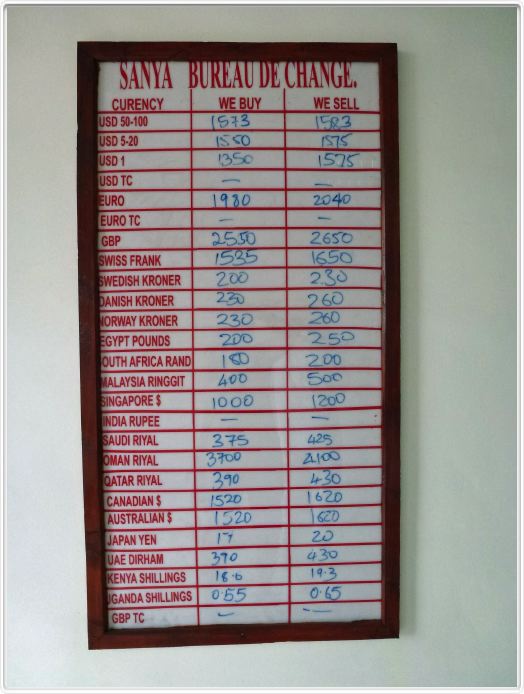 SANYA BUREAU DE CHANGE.
CURENCY WE BUY WE SELL
USD 50-100 1573 1583
USD 5-20 1550 1575
USD 1 1350 1575
USD TC — —
EURO 1980 2040
EURO TC — —
GBP 2550 2650
SWISS FRANK 1535 1650
SWEDISH KRONER 200 230
DANISH KRONER 230 260
NORWAY KRONER 230 260
EGYPT POUNDS 200 250
SOUTH AFRICA RAND 180 200
MALAYSIA RINGGIT 400 500
SINGAPORE $ 1000 1200
INDIA RUPEE — —
SAUDI RIYAL 375 425
OMAN RIYAL 3700 4100
QATAR RIYAL 390 430
CANADIAN $ 1520 1620
AUSTRALIAN $ 1520 1620
JAPAN YEN 17 20
UAE DIRHAM 390 430
KENYA SHILLINGS 18.6 19.3
UGANDA SHILLINGS 0.55 0.65
GBP TC — —